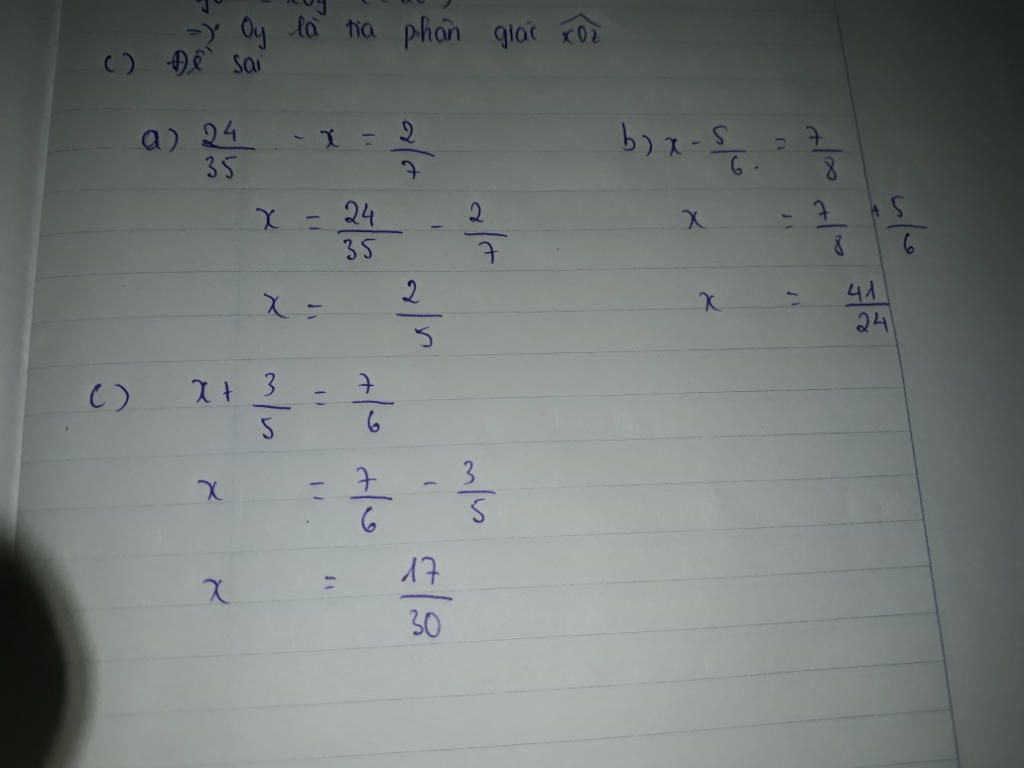 => Oy là tia phân giác xOz
c) Đề sai
a) 24/35 - x = 2/7
x = 24/35 - 2/7
x = 2/5
b) x - 5/6 = 7/8
x = 7/8 + 5/6
x = 41/24
c) x + 3/5 = 7/6
x = 7/6 - 3/5
x = 17/30